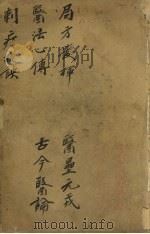 局方發揮
醫法心傳
刺疔訣
醫壘元戎
古今醫論
mtoou.info mtoou.info